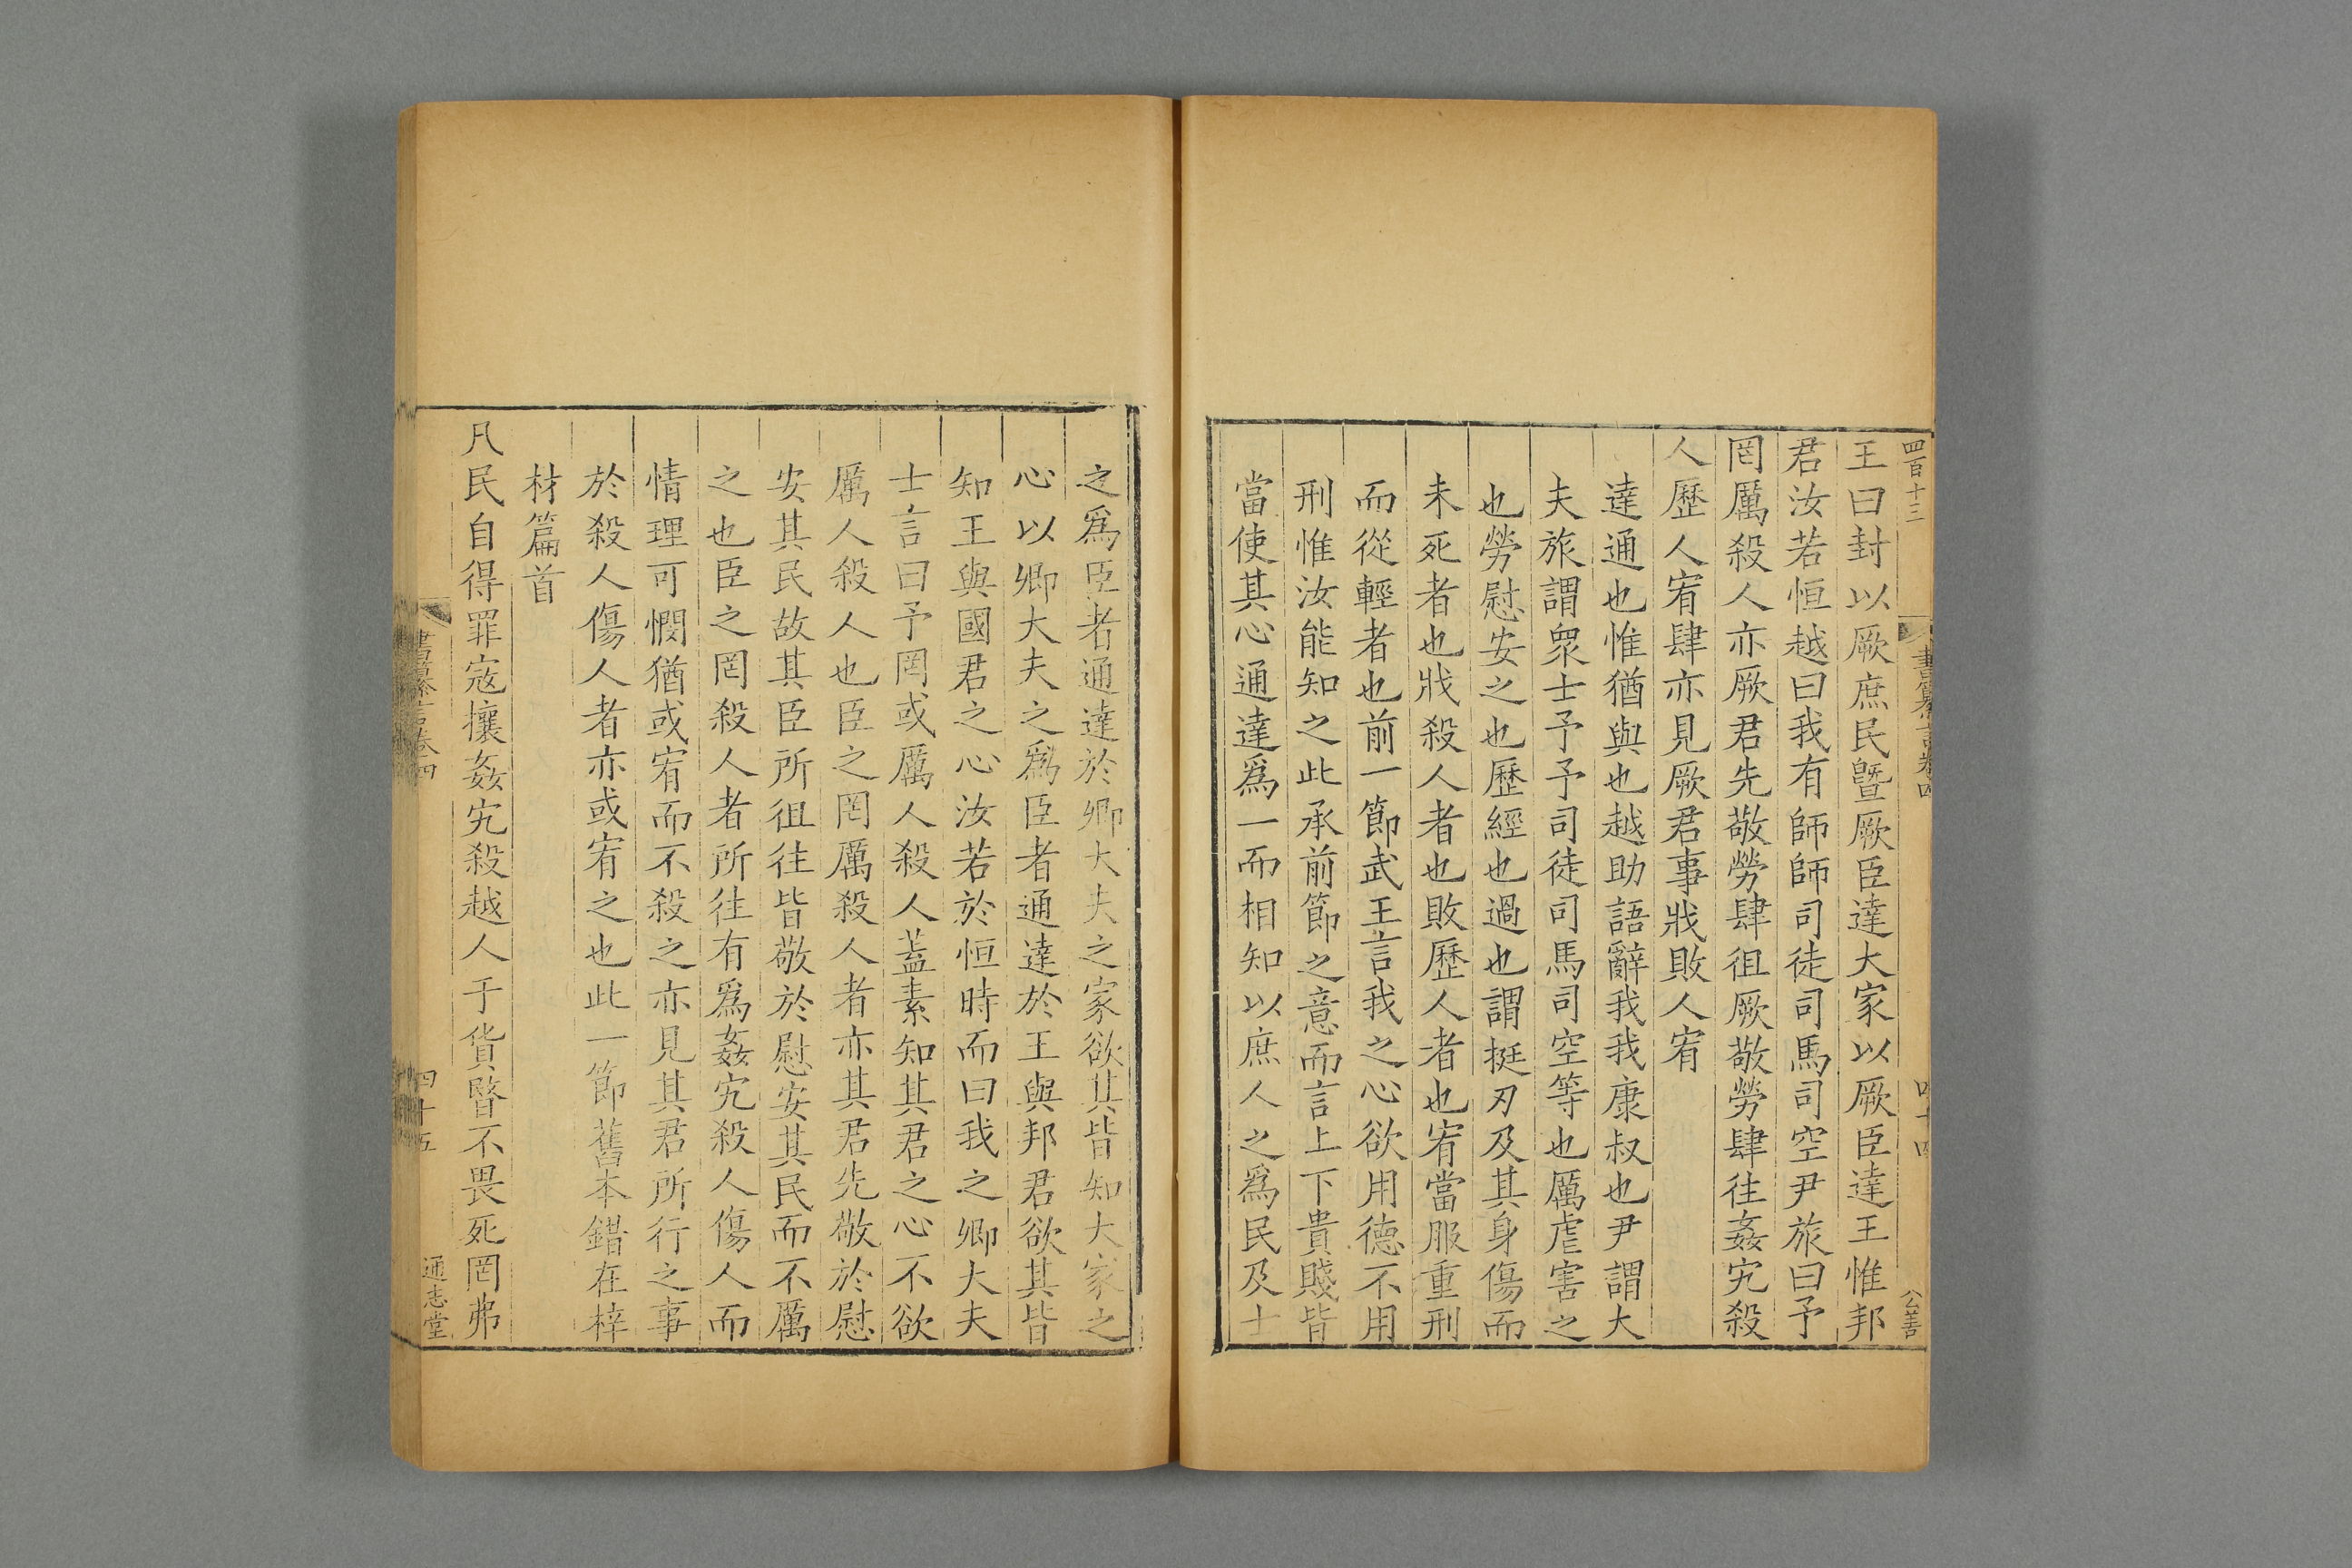 四百十三
書纂言卷四
四十四
公善
王曰封以厥庶民曁厥臣達大家以厥臣達王惟邦
君汝若恒越曰我有師師司徒司馬司空尹旅曰予
罔厲殺人亦厥君先敬勞肆徂厥敬勞肆往姦宄殺
人歷人宥肆亦見厥君事戕敗人宥
達通也惟猶與也越助語辭我我康叔也尹謂大
夫旅謂衆士予予司徒司馬司空等也厲虐害之
也勞慰安之也歷經也過也謂挺刃及其身傷而
未死者也戕殺人者也敗歷人者也宥當服重刑
而從輕者也前一節武王言我之心欲用德不用
刑惟汝能知之此承前節之意而言上下貴賤皆
當使其心通達爲一而相知以庶人之爲民及士
之爲臣者通達於卿大夫之家欲其皆知大家之
心以卿大夫之爲臣者通達於王與邦君欲其皆
知王與國君之心汝若於恒時而曰我之卿大夫
士言曰予罔或厲人殺人蓋素知其君之心不欲
厲人殺人也臣之罔厲殺人者亦其君先敬於慰
安其民故其臣所徂往皆敬於慰安其民而不厲
之也臣之罔殺人者所往有爲姦宄殺人傷人而
情理可憫猶或宥而不殺之亦見其君所行之事
於殺人傷人者亦或宥之也此一節舊本錯在梓
材篇首
凡民自得罪寇攘姦宄殺越人于貨暋不畏死罔弗
書纂言卷四
四十五
通志堂